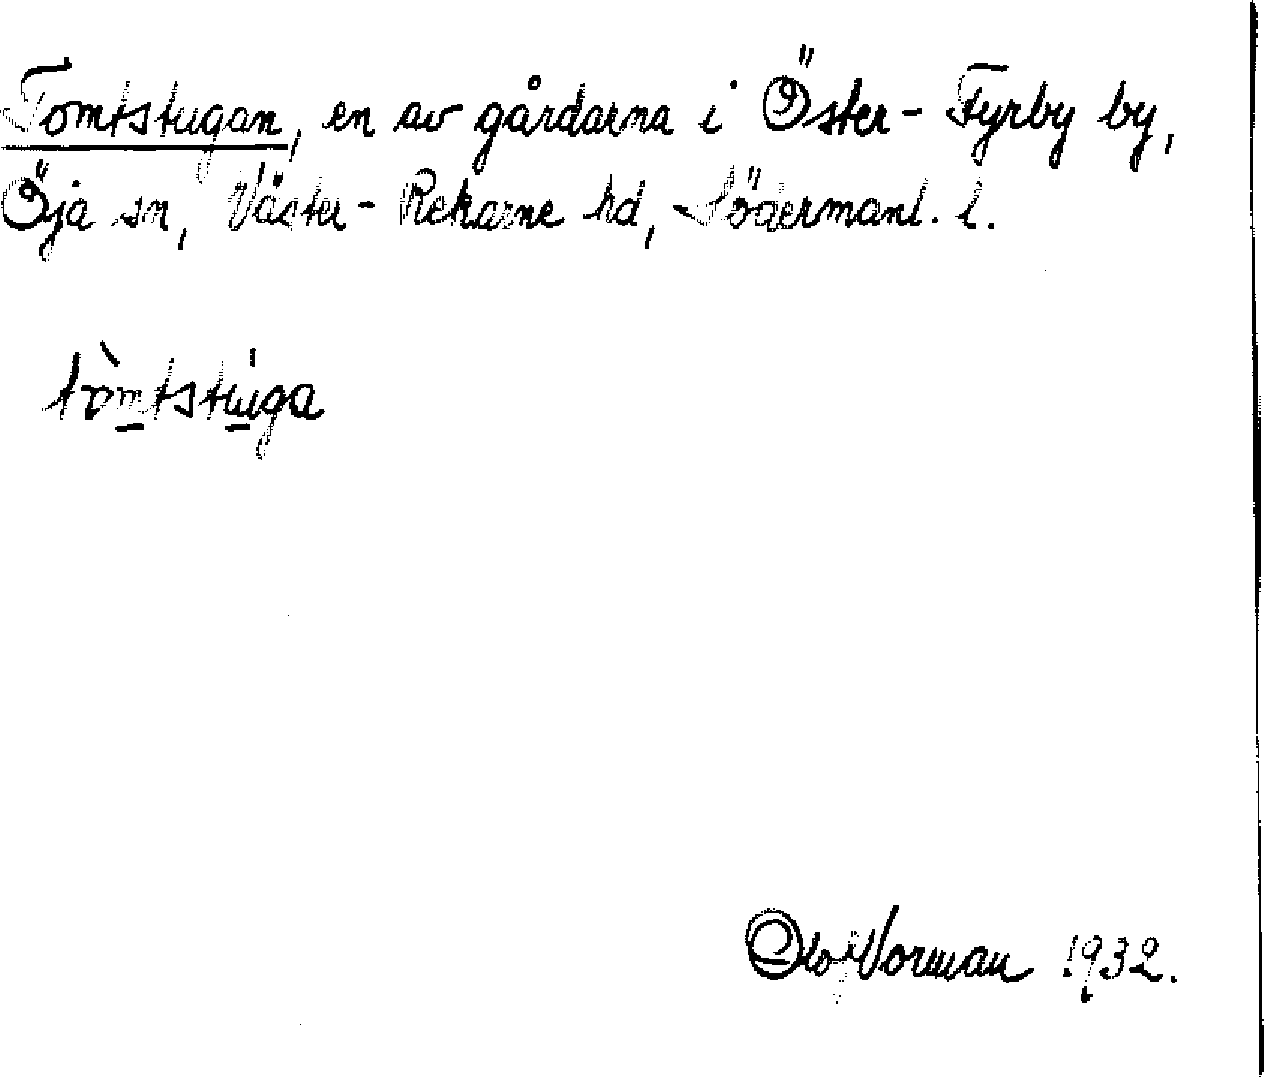 Tomtstugan, en av gårdarna i Öster-Fyrby by,
Öja sn, Väster-Rekarne hd, Södermanl. l.
tòmtstúga
Olof Vorman 1932.